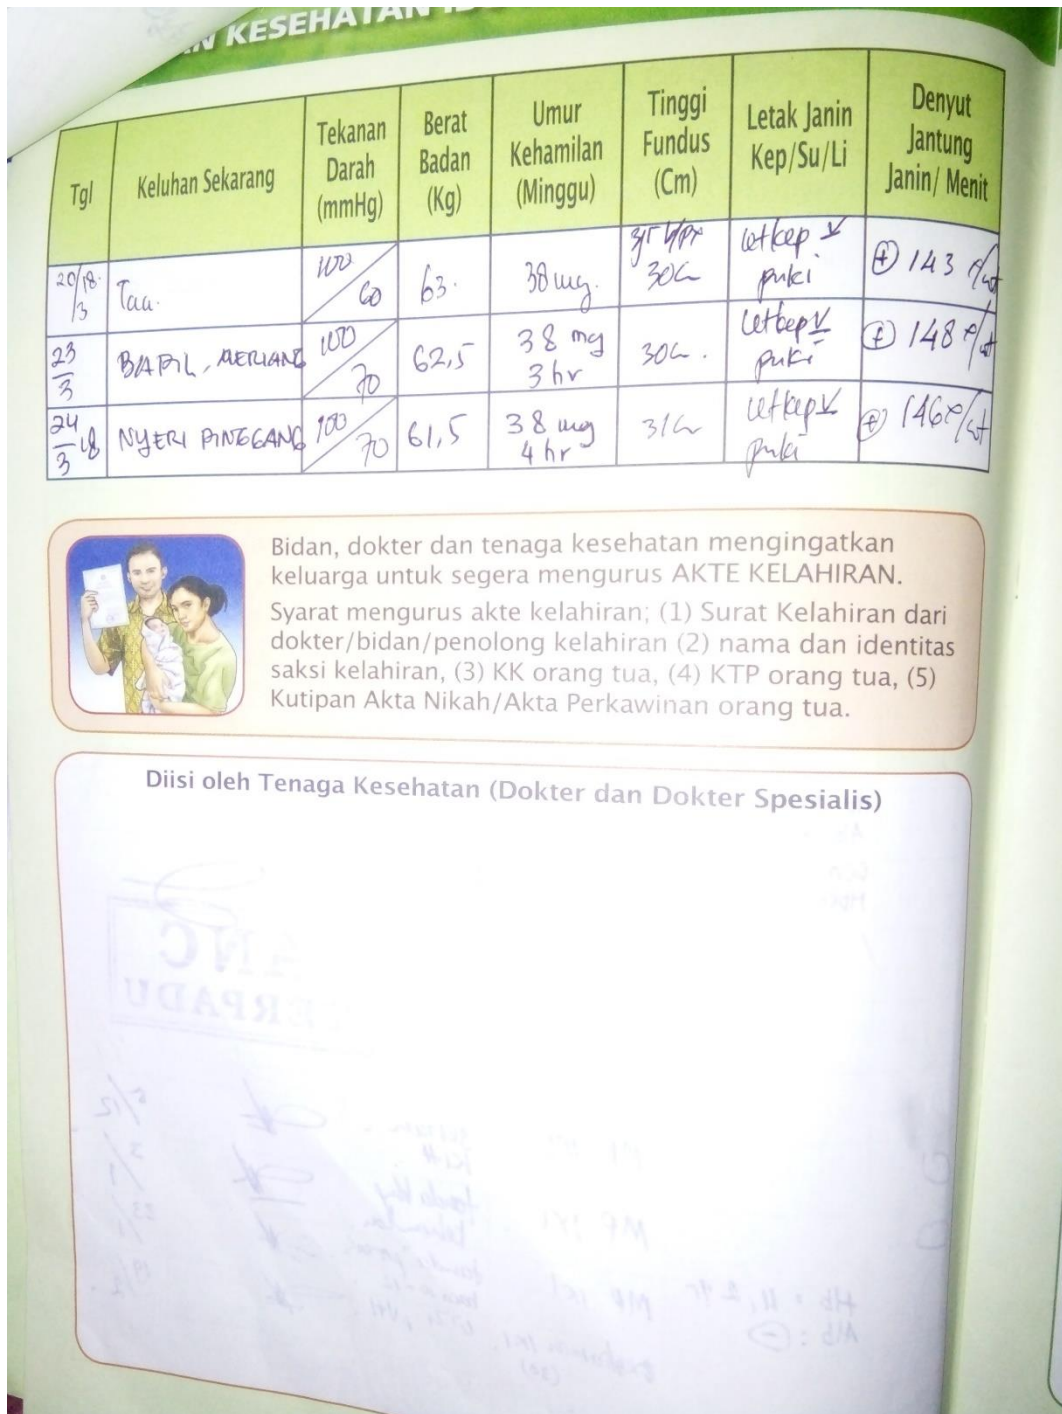 KESEHATAN
Tgl
Keluhan Sekarang
Tekanan Darah (mmHg)
Berat Badan (Kg)
Umur Kehamilan (Minggu)
Tinggi Fundus (Cm)
Letak Janin Kep/Su/Li
Denyut Jantung Janin/ Menit
20/18. 3
Taa.
100/60
63.
38 mg.
30cm
letkep puki
(+) 143 x/mt
23/3
BAPIL, MERIANG
100/70
62,5
38 mg 3 hr
30cm.
letkep puki
(+) 148 x/mt
24/3 18
NYERI PINGGANG
100/70
61,5
38 mg 4 hr
31cm
letkep puki
(+) 146x/mt
Bidan, dokter dan tenaga kesehatan mengingatkan
keluarga untuk segera mengurus AKTE KELAHIRAN.
Syarat mengurus akte kelahiran; (1) Surat Kelahiran dari
dokter/bidan/penolong kelahiran (2) nama dan identitas
saksi kelahiran, (3) KK orang tua, (4) KTP orang tua, (5)
Kutipan Akta Nikah/Akta Perkawinan orang tua.
Diisi oleh Tenaga Kesehatan (Dokter dan Dokter Spesialis)